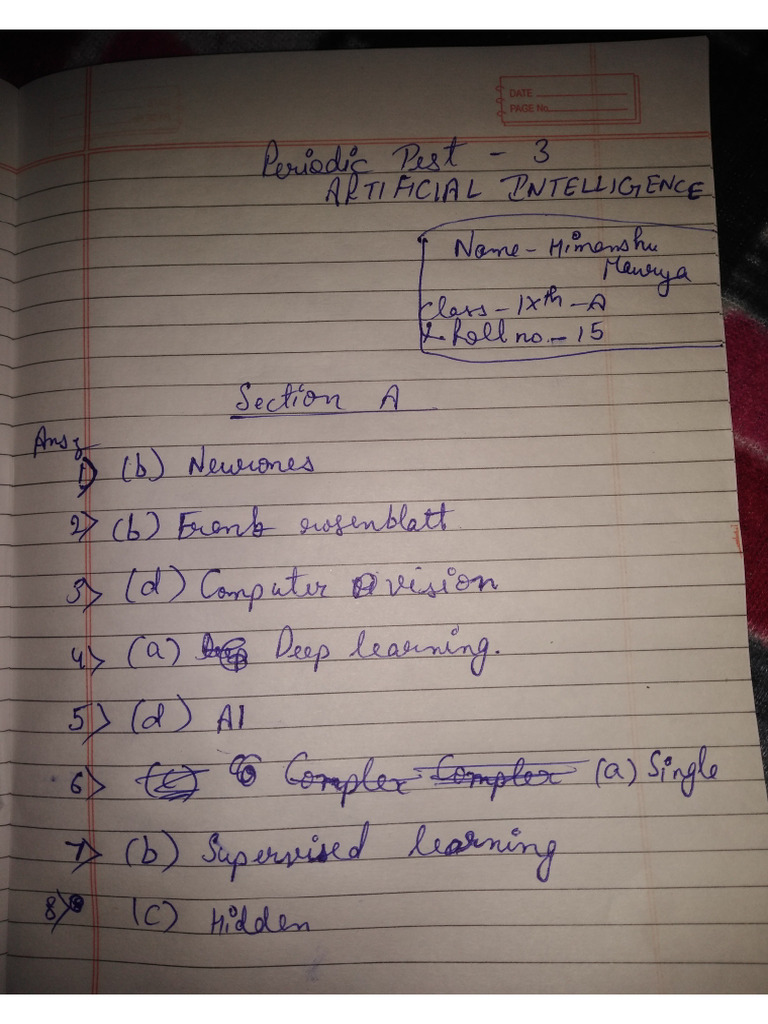 DATE
PAGE No.
Periodic Test - 3
ARTIFICIAL INTELLIGENCE
Name - Himanshu
Maurya
Class - IXth - A
Roll no. - 15
Section A
Ans
1) (b) Neurones
2) (b) Frank rosenblatt
3) (d) Computer vision
4) (a) Deep learning.
5) (d) AI
6) (c) Complex Complex (a) Single
7) (b) Supervised learning
8) (c) Hidden